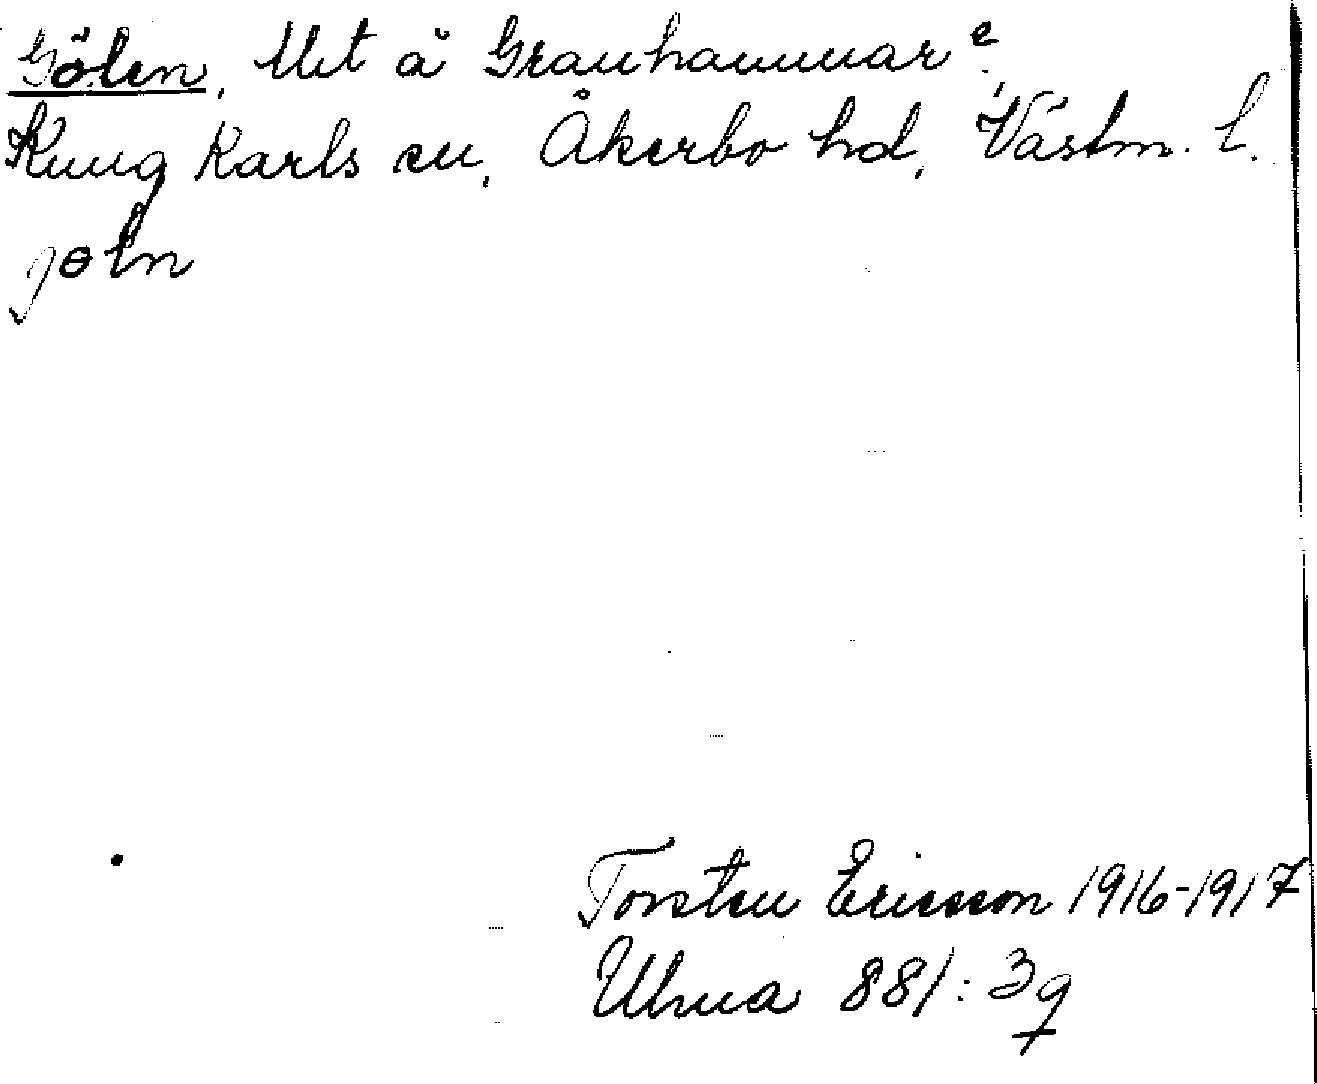 Gölen, Utit å Granhammar e.
Kung Karls sn, Åkerbo hd, Västm. l.
jөln
Torsten Ericsson 1916-1917
Ulma 881: 3 q